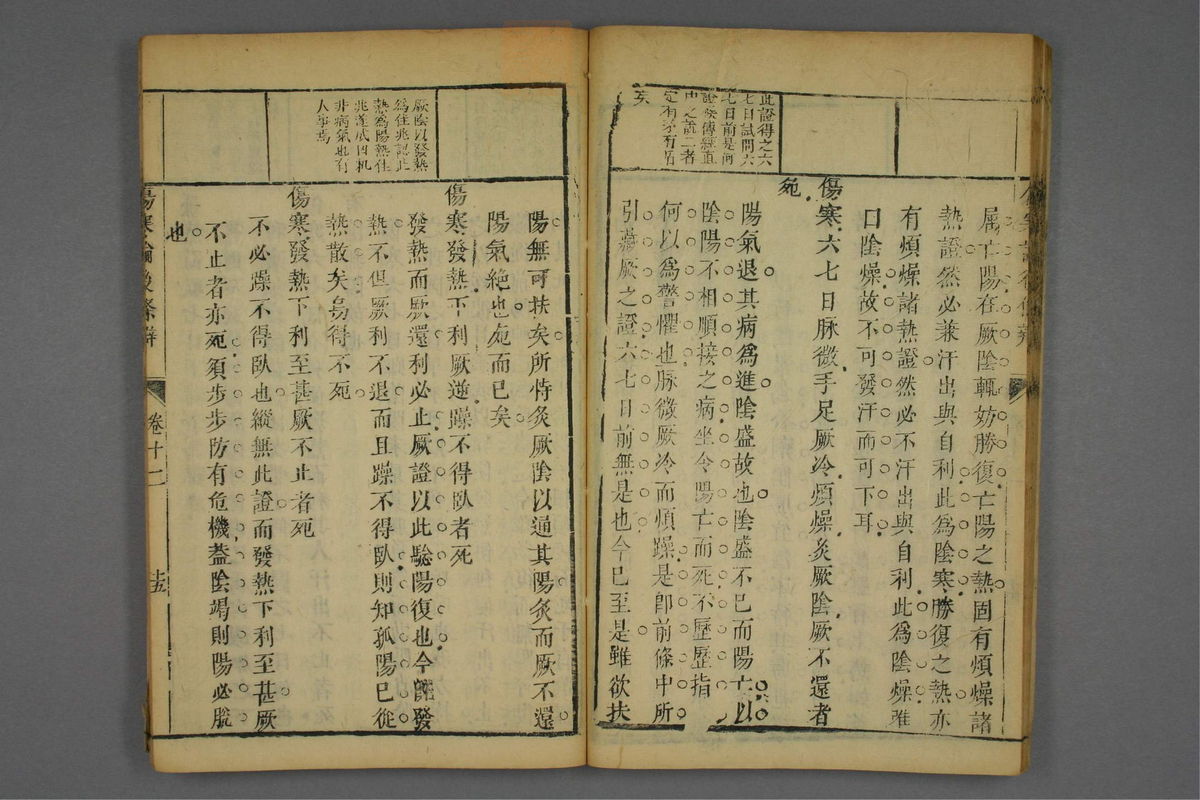 屬亡陽在厥陰輒妨勝復亡陽之熱固有煩燥諸
熱證然必兼汗出與自利此為陰寒勝復之熱亦
有煩燥諸熱證然必不汗出與自利此為陰燥雖
曰陰燥故不可發汗而可下耳
傷寒六七日脉微手足厥冷煩燥灸厥陰厥不還者
死
此證得之六
七日試問六
七日前是何
證
二者
矣
陽氣退其病為進陰盛故也陰盛不已而陽亡以
陰陽不相順接之病坐令陽亡而死不歷歷指
何以為警懼也脉微厥冷而煩躁是即前條中所
引藏厥之證六七日前無是也今已至是雖欲扶
陽無可扶矣所恃灸厥陰以通其陽灸而厥不還
陽氣絶也死而已矣
厥陰以發熱
為佳兆認此
熱為陽熱佳
兆遂成凶机
非病氣也有
人事焉
傷寒發熱下利厥逆躁不得臥者死
發熱而厥還利必止厥證以此驗陽復也今雖發
熱不但厥利不退而且躁不得臥則知孤陽已從
熱散矣烏得不死
傷寒發熱下利至甚厥不止者死
不必躁不得臥也縱無此證而發熱下利至甚厥
不止者亦死須步步防有危機蓋陰竭則陽必脫
也
傷寒論後條辨
卷十二
十五